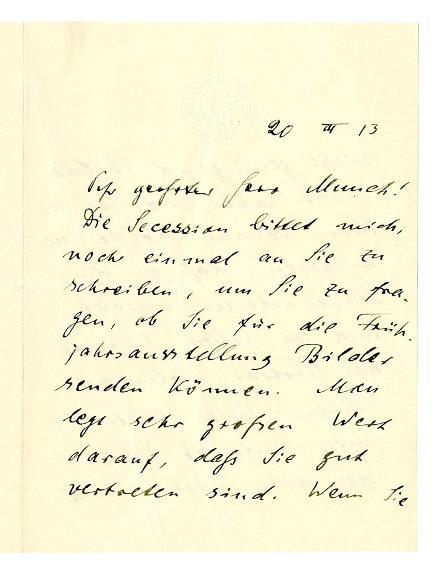 20 III 13
Sehr geehrter Herr Munch!
Die Secession bittet mich,
noch einmal an Sie zu
schreiben, um Sie zu fra-
gen, ob Sie für die Früh-
jahrsausstellung Bilder
senden können. Man
legt sehr großen Wert
darauf, daß Sie gut
vertreten sind. Wenn Sie